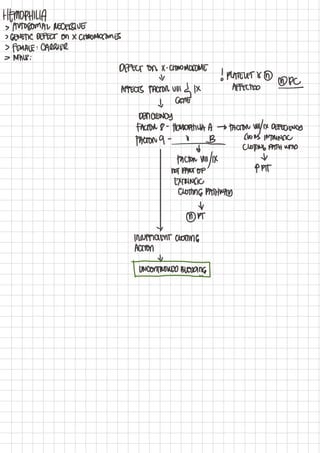 HEMOPHILIA
> AUTOSOMAL RECESSIVE
> GENETIC DEFECT ON X CHROMOSOMES
> FEMALE: CARRIER
> MALE:
DEFECT ON X-CHROMOSOME
↓
AFFECTS FACTOR VIII & IX
GENE
! PLATELET X Ⓝ
AFFECTED
Ⓝ PC
↓
DEFICIENCY
FACTOR 8 - HEMOPHILIA A → FACTOR VIII/IX DEFICIENCY
FACTOR 9 - " B
INTRINSIC
CLOTTING PATH
↓
↑ PTT
↓
FACTOR VIII/IX
NOT PART OF
EXTRINSIC
CLOTTING PATHWAY
↓
Ⓝ PT
↓
INSUFFICIENT CLOTTING
ACTION
↓
UNCONTROLLED BLEEDING